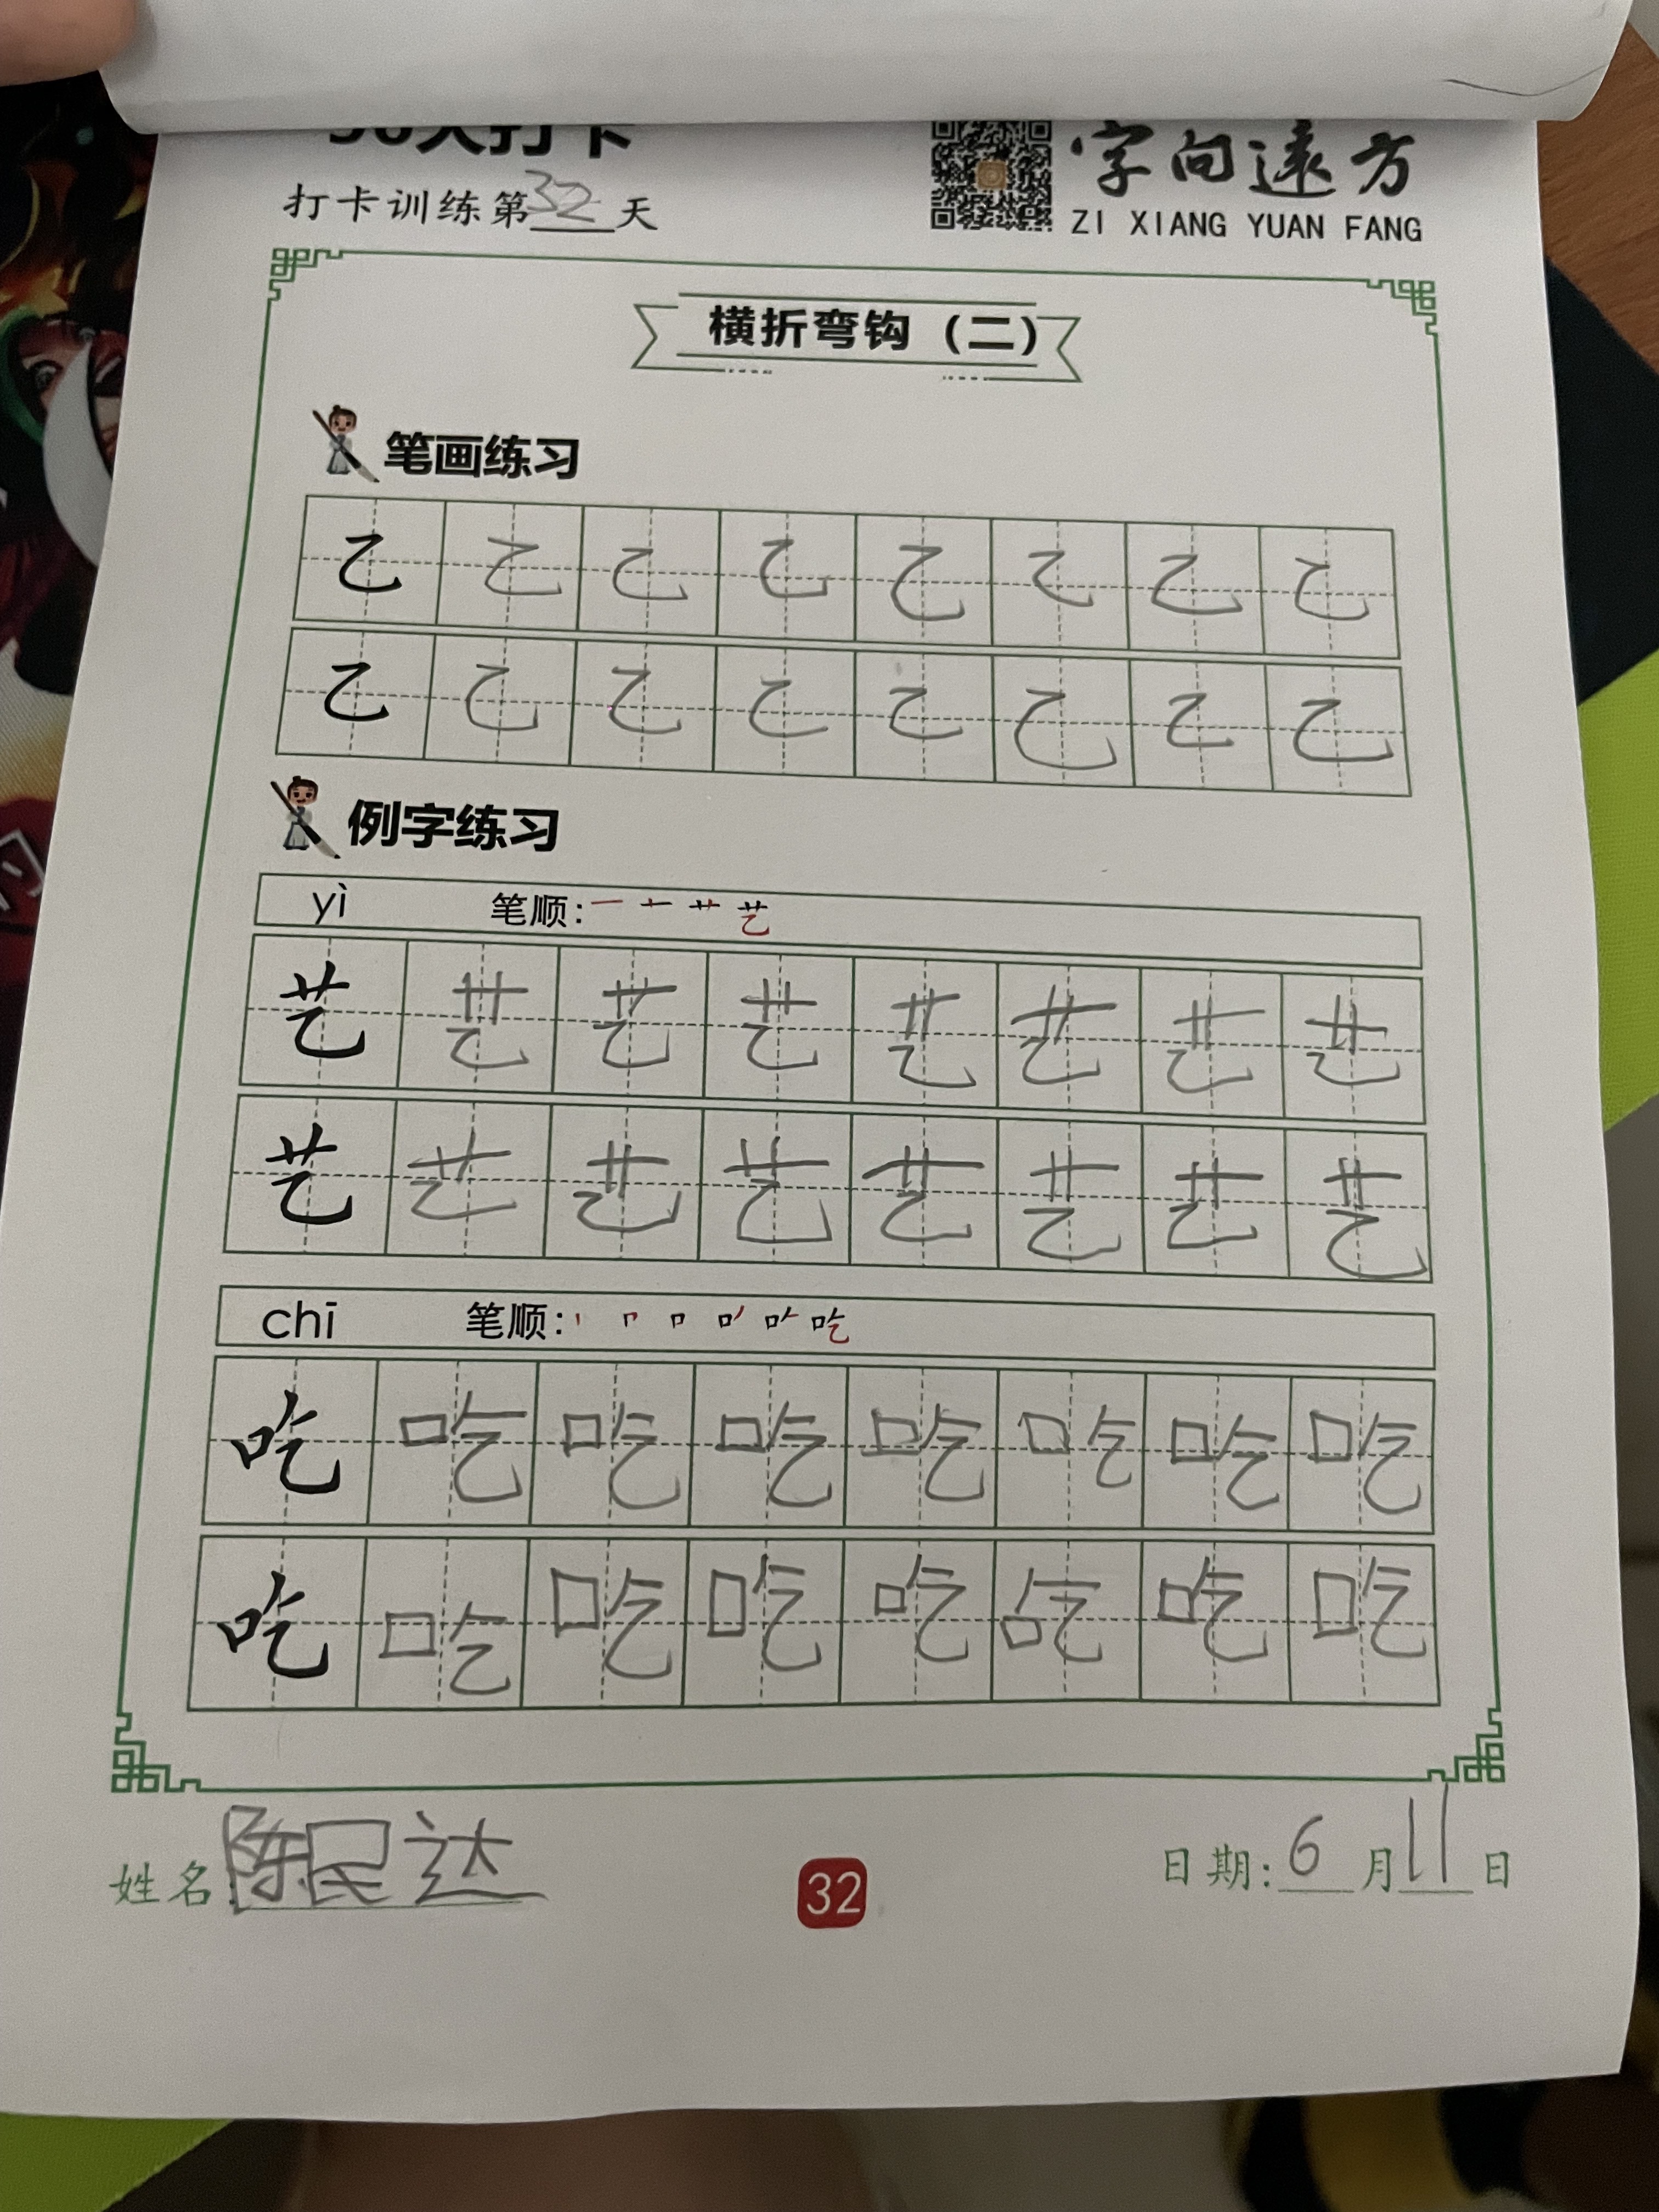 打卡训练第32天
字向遠方
ZI XIANG YUAN FANG
横折弯钩（二）
笔画练习
乙 乙 乙 乙 乙 乙 乙 乙
乙 乙 乙 乙 乙 乙 乙 乙
例字练习
yì 笔顺: 艺
艺 艺 艺 艺 艺 艺 艺 艺
艺 艺 艺 艺 艺 艺 艺 艺
chī 笔顺: 吃
吃 吃 吃 吃 吃 吃 吃 吃
吃 吃 吃 吃 吃 吃 吃 吃
姓名: 陈民达
32
日期: 6月11日